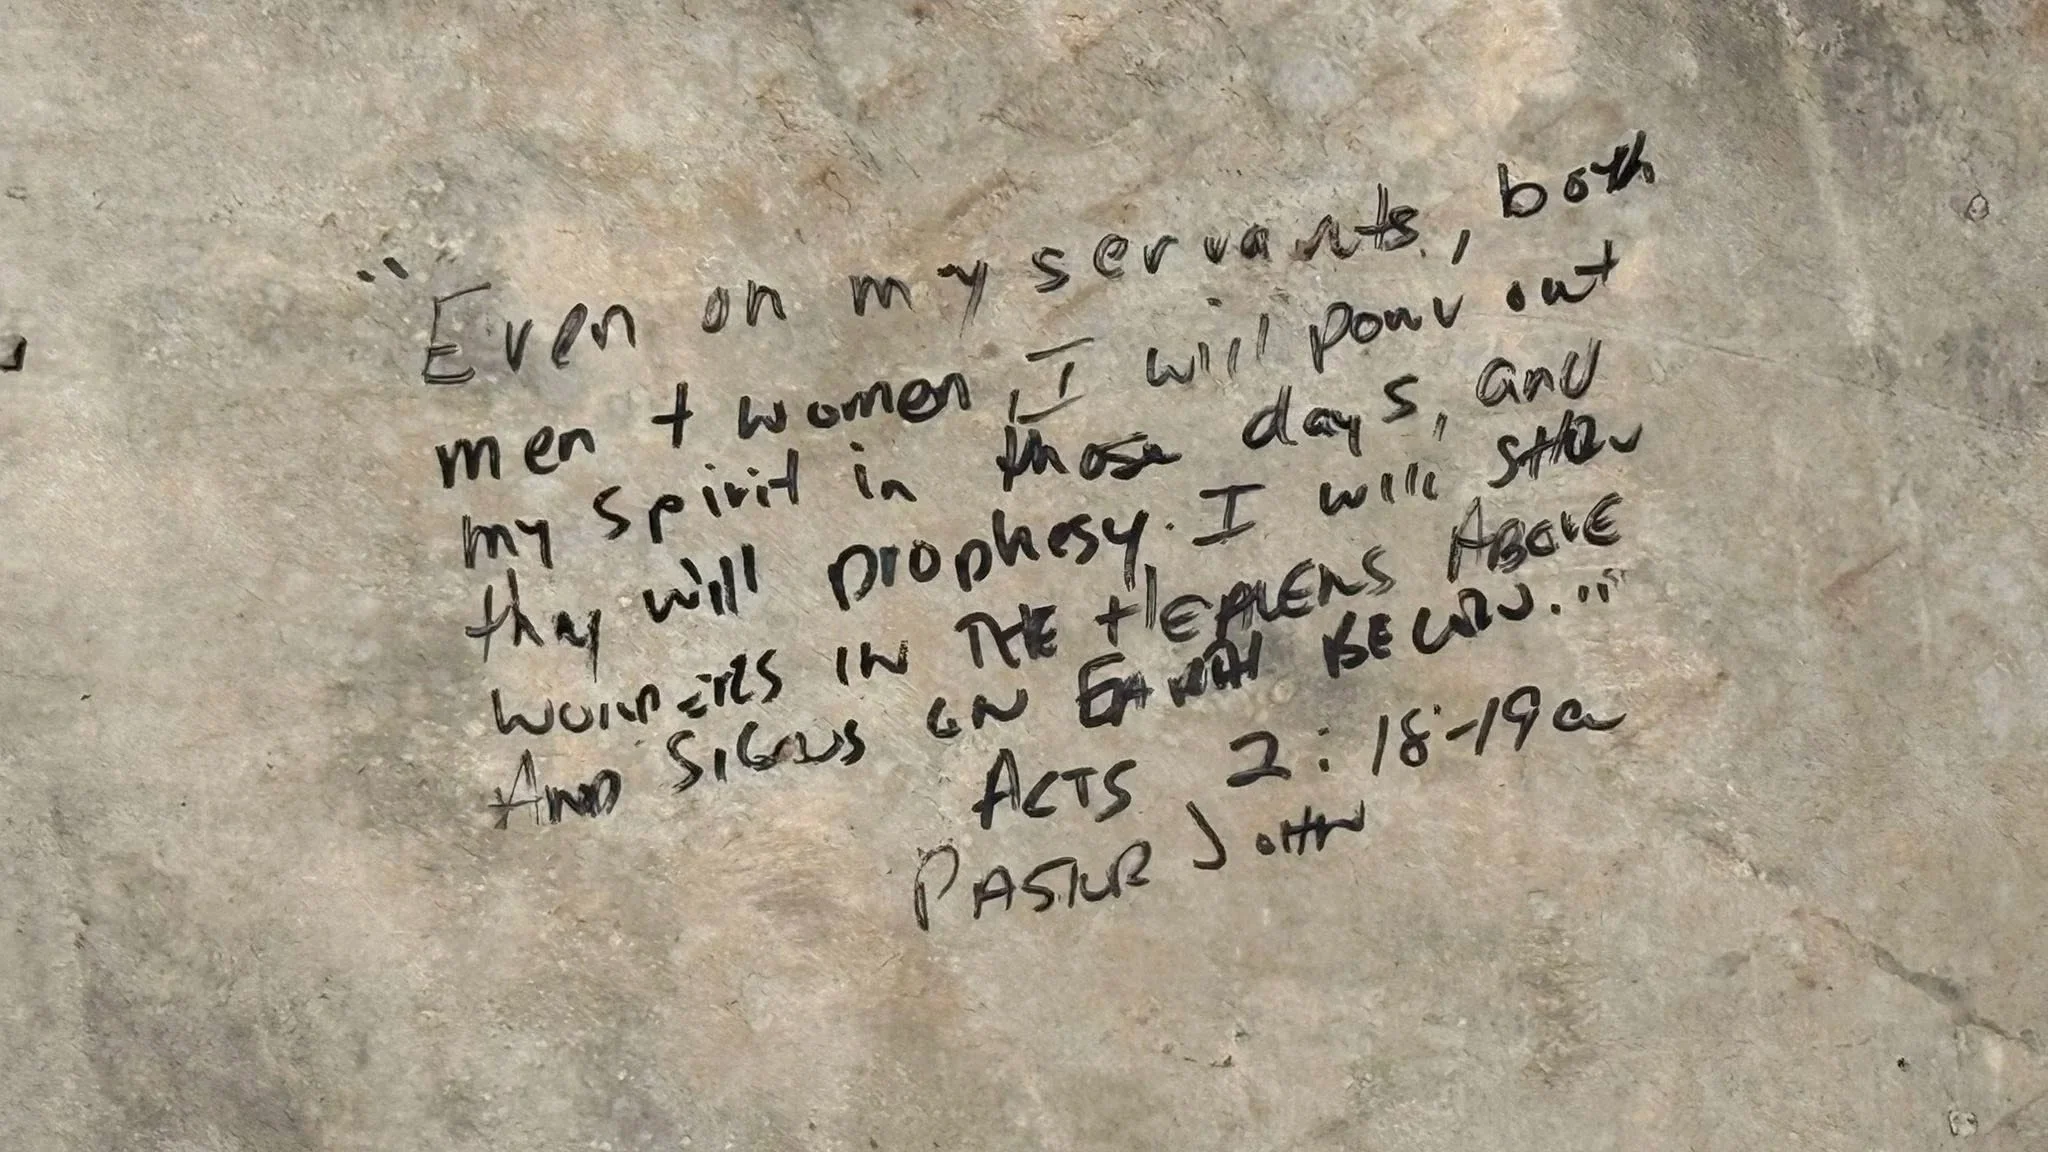 "Even on my servants, both
men + women, I will pour out
my spirit in those days, and
they will prophesy. I will SHOW
WONDERS IN THE HEAVENS ABOVE
AND SIGNS ON EARTH BELOW..."
ACTS 2:18-19a
PASTOR JOHN